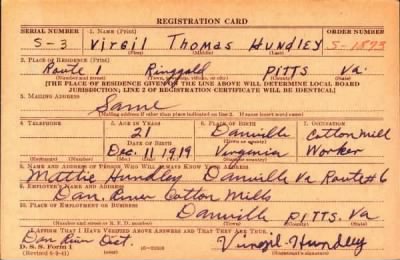 REGISTRATION CARD
SERIAL NUMBER 1. NAME (Print) ORDER NUMBER
S-3 Virgil Thomas Hundley S-1873
(First) (Middle) (Last)
2. PLACE OF RESIDENCE (Print)
Route 1 Ringgold PITTS Va.
(Number and street) (Town, township, village, or city) (County) (State)
[THE PLACE OF RESIDENCE GIVEN ON THE LINE ABOVE WILL DETERMINE LOCAL BOARD
JURISDICTION; LINE 2 OF REGISTRATION CERTIFICATE WILL BE IDENTICAL]
3. MAILING ADDRESS
Same
[Mailing address if other than place indicated on line 2. If same insert word same]
4. TELEPHONE 5. AGE IN YEARS 6. PLACE OF BIRTH 7. OCCUPATION
21 Danville Cotton Mill
DATE OF BIRTH (Town or county)
Dec. 11 1919 Virginia Worker
(Exchange) (Number) (Mo.) (Day) (Yr.) (State or country)
8. NAME AND ADDRESS OF PERSON WHO WILL ALWAYS KNOW YOUR ADDRESS
Mattie Hundley Danville Va Route #6
9. EMPLOYER'S NAME AND ADDRESS
Dan. River Cotton Mills
10. PLACE OF EMPLOYMENT OR BUSINESS
Danville PITTS. Va
(Number and street or R. F. D. number) (Town) (County) (State)
I AFFIRM THAT I HAVE VERIFIED ABOVE ANSWERS AND THAT THEY ARE TRUE.
Dan River Dist. Virgil Hundley
D. S. S. Form 1